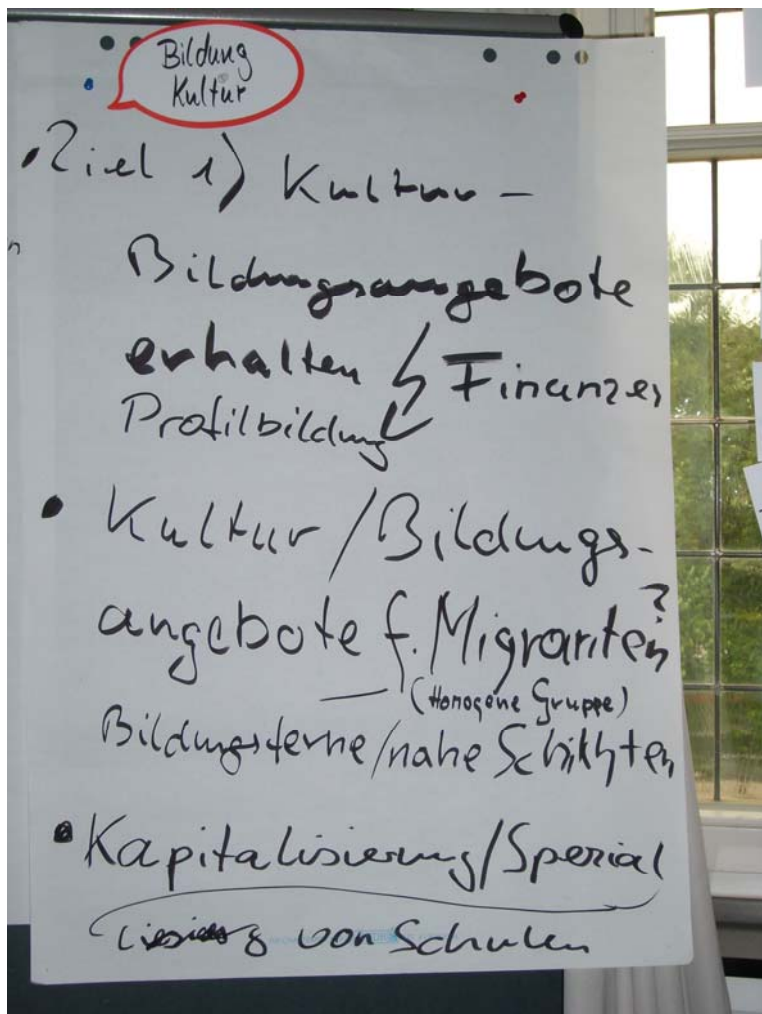 Bildung
Kultur
Ziel 1) Kultur –
Bildungsangebote
erhalten Finanzen
Profilbildung
• Kultur/Bildungs-
angebote f. Migranten?
(Homogene Gruppe)
Bildungsferne/nahe Schichten
• Kapitalisierung/Spezial
von Schulen